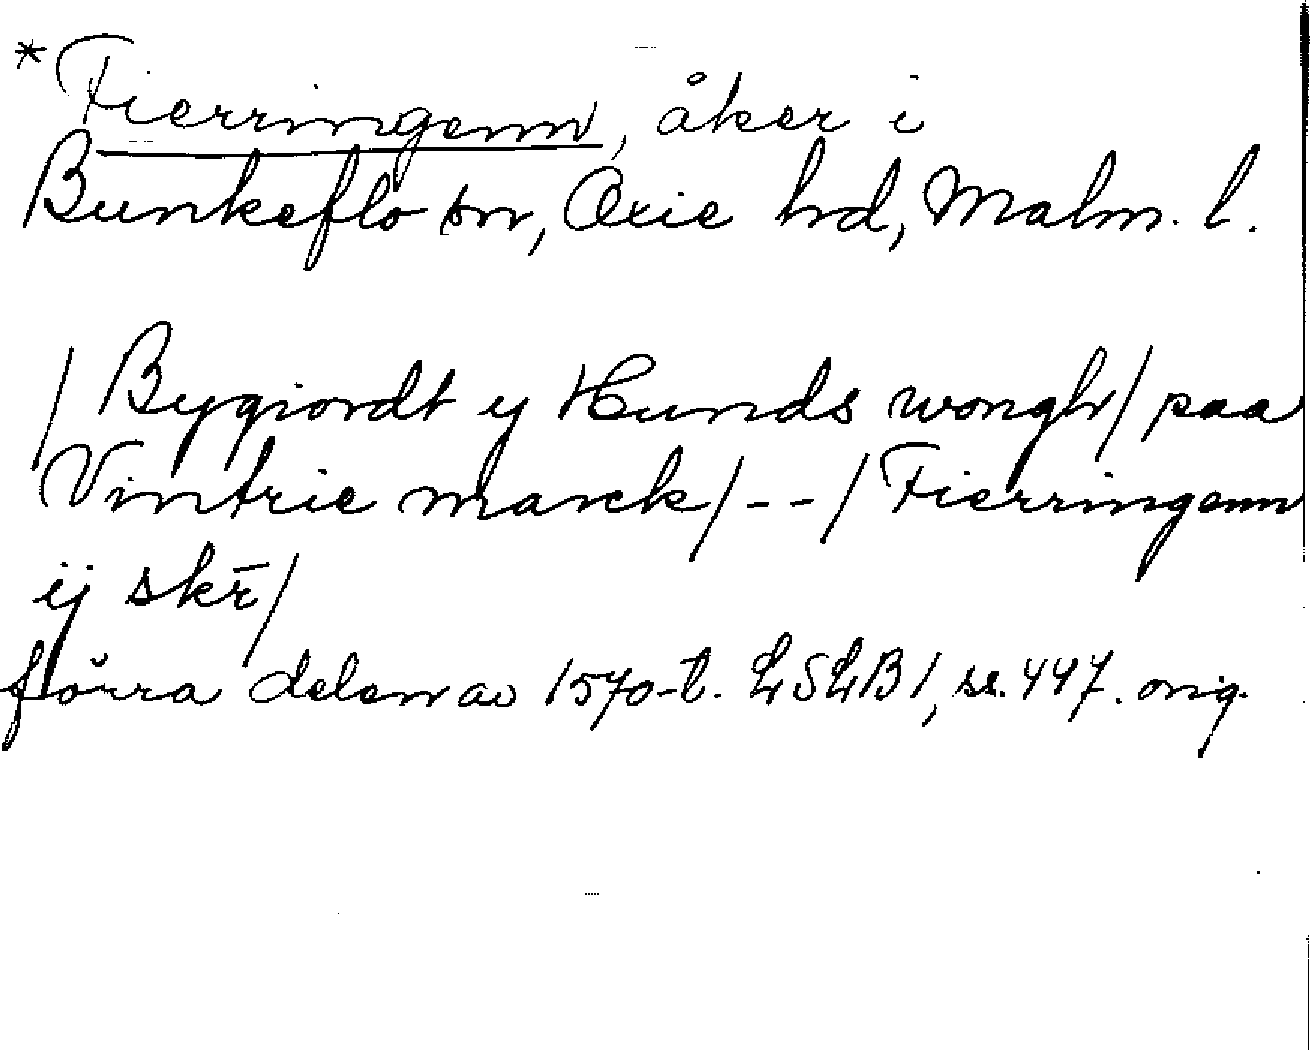 *Fierringenn, åker i
Bunkeflo sn, Oxie hd, Malm. l.
/ Bygiordt y Hunds wongh / paa
Vintrie marck / - - / Fierringenn
ij skr̄ /
förra delen av 1570-t. LSLB 1, s. 447. orig.